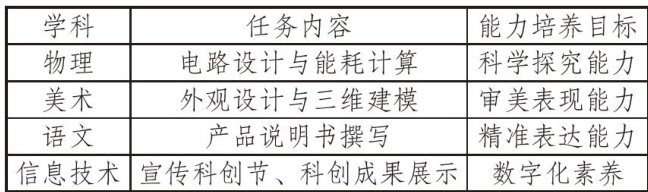 学科 任务内容 能力培养目标
物理 电路设计与能耗计算 科学探究能力
美术 外观设计与三维建模 审美表现能力
语文 产品说明书撰写 精准表达能力
信息技术 宣传科创节、科创成果展示 数字化素养